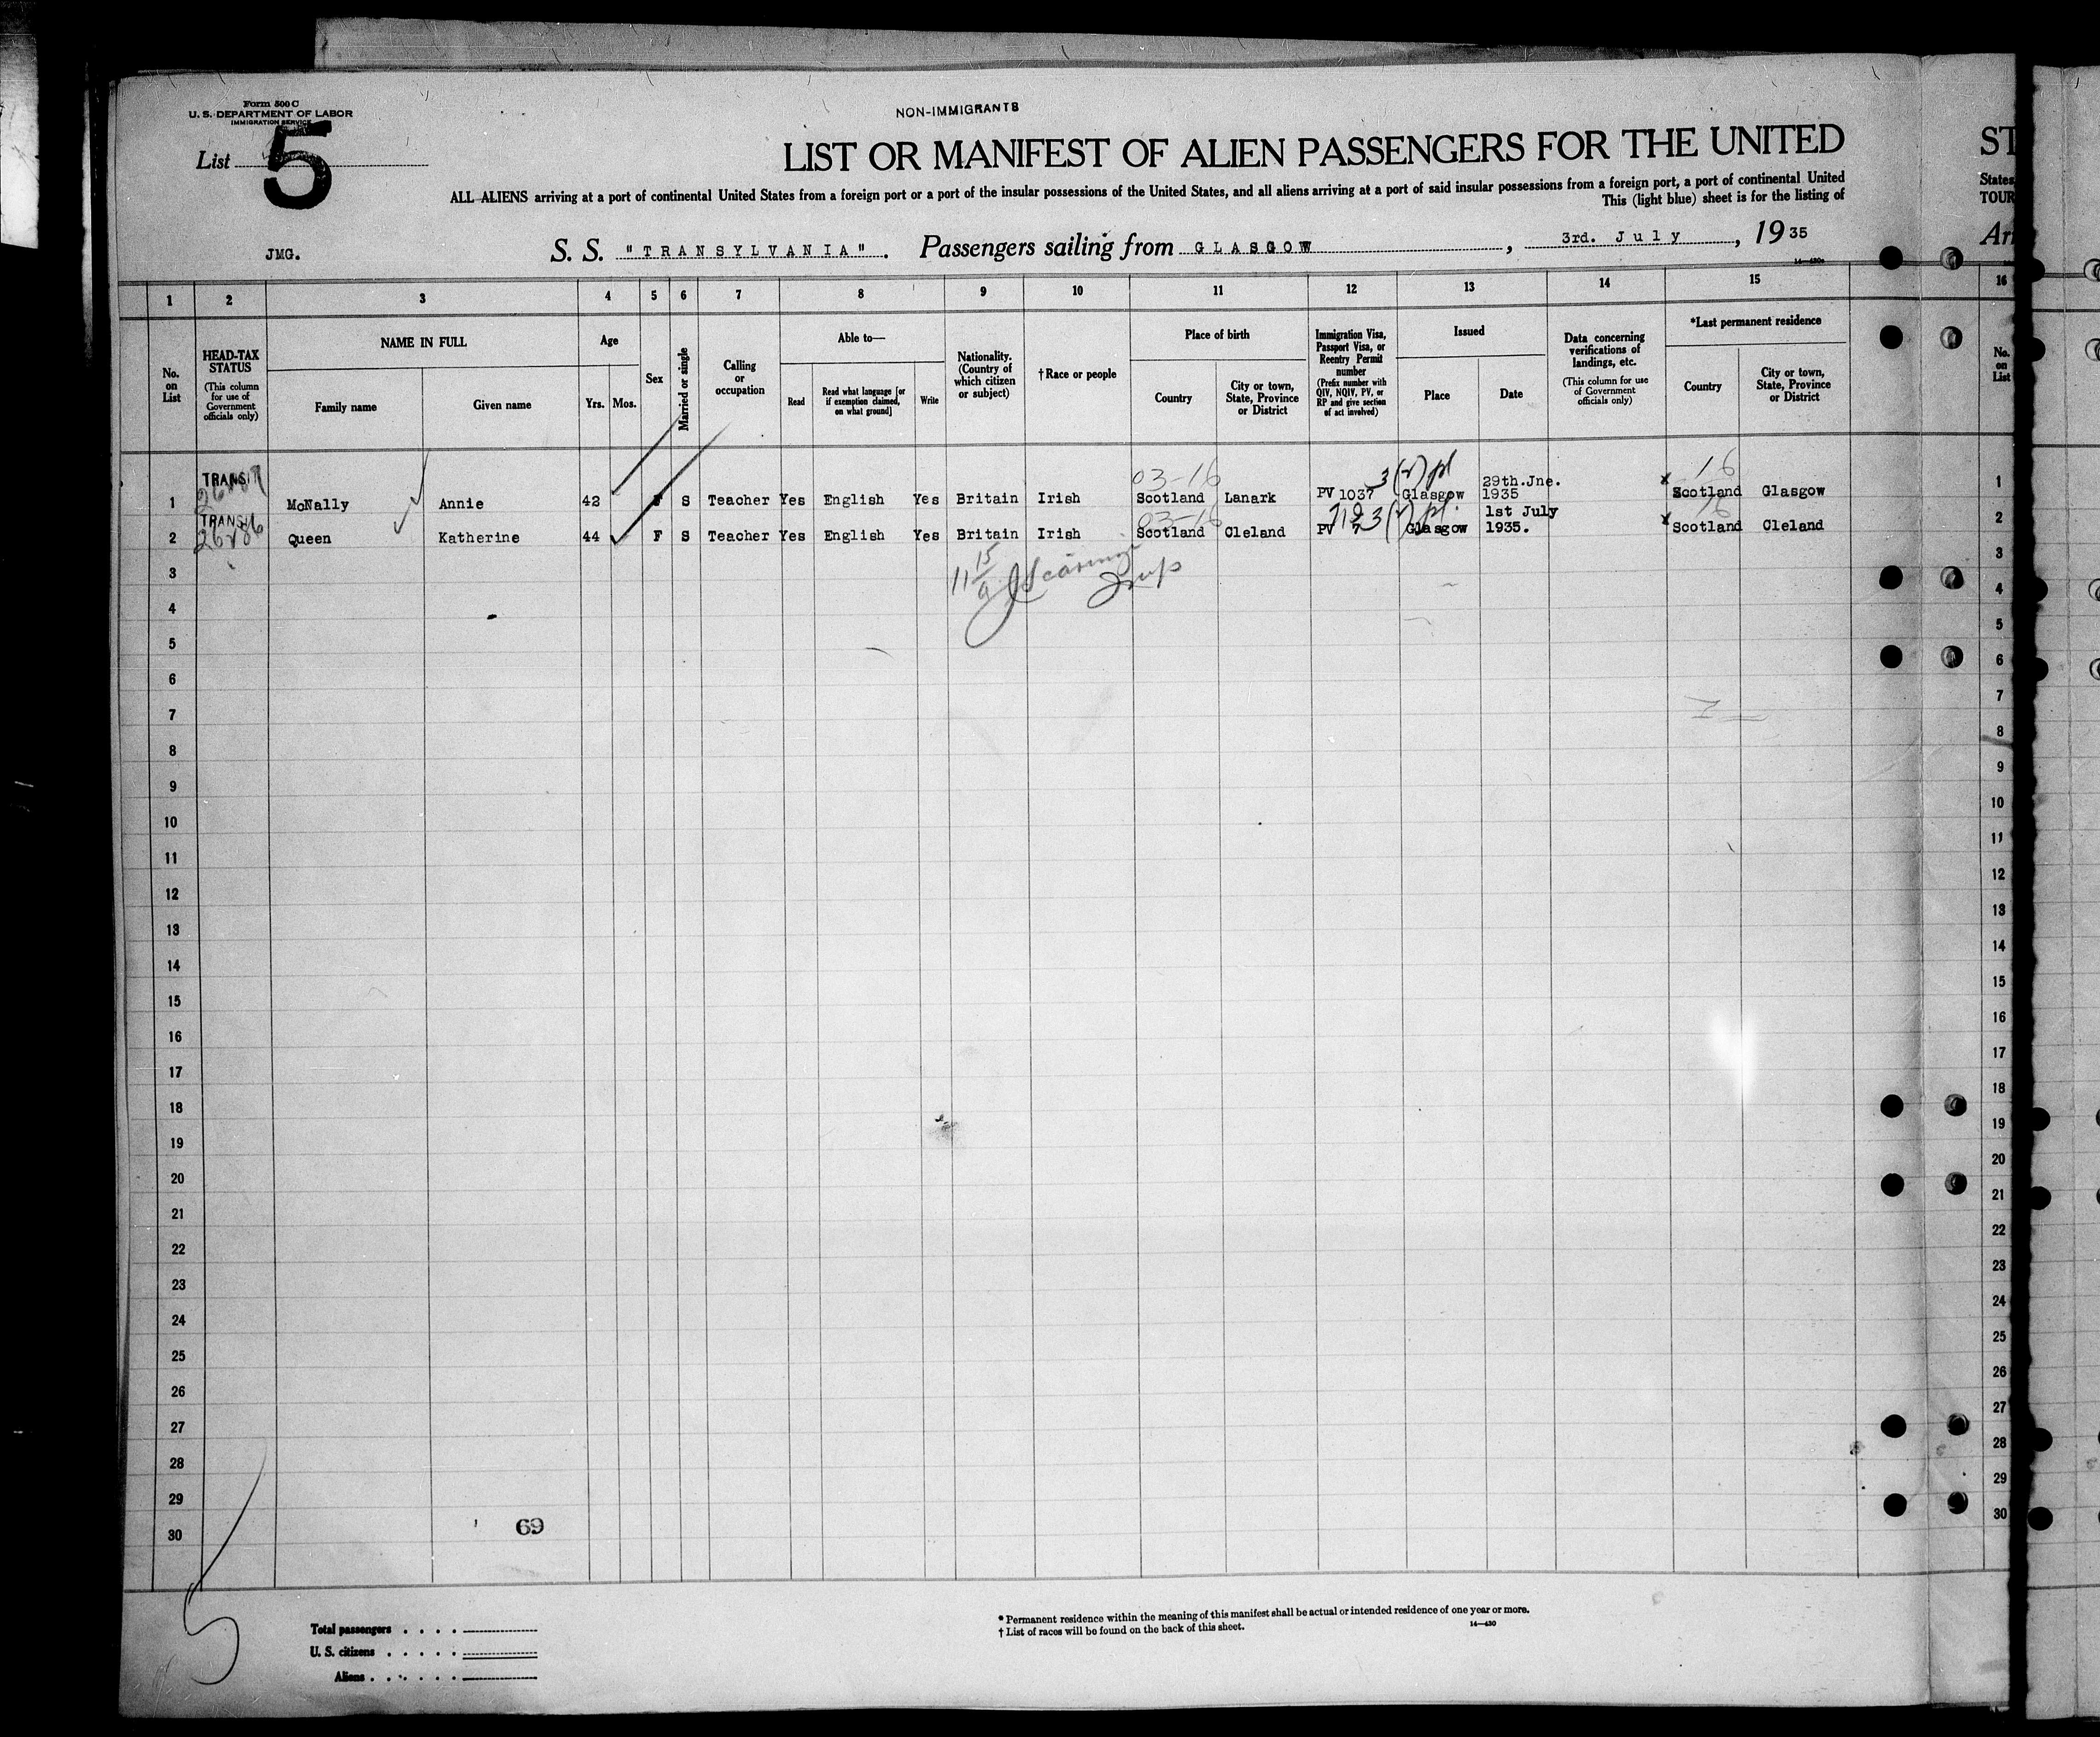 Form 500 C
U. S. DEPARTMENT OF LABOR
IMMIGRATION SERVICE
NON-IMMIGRANTS
List 5
LIST OR MANIFEST OF ALIEN PASSENGERS FOR THE UNITED
ST
ALL ALIENS arriving at a port of continental United States from a foreign port or a port of the insular possessions of the United States, and all aliens arriving at a port of said insular possessions from a foreign port, a port of continental United
States
This (light blue) sheet is for the listing of
TOUR
JMG.
S. S. "TRANSYLVANIA". Passengers sailing from GLASGOW, 3rd. July, 1935
Ar
1 2 3 4 5 6 7 8 9 10 11 12 13 14 15 16
No. on List
HEAD-TAX STATUS (This column for use of Government officials only)
NAME IN FULL
Family name
Given name
Age
Yrs. Mos.
Sex
Married or single
Calling or occupation
Able to—
Read
Read what language [or if exemption claimed, on what ground]
Write
Nationality. (Country of which citizen or subject)
† Race or people
Place of birth
Country
City or town, State, Province or District
Immigration Visa, Passport Visa, or Reentry Permit number (Prefix number with QIV, NQIV, PV, or RP and give section of act involved)
Issued
Place
Date
Data concerning verifications of landings, etc. (This column for use of Government officials only)
*Last permanent residence
Country
City or town, State, Province or District
No. on List
TRANSIT 03-16 3(2) pl 29th.Jne. 16
1 McNally Annie 42 F S Teacher Yes English Yes Britain Irish Scotland Lanark PV 1037 Glasgow 1935 x Scotland Glasgow 1
TRANSIT 03-16 3(2) pl. 1st July 16
2 Queen Katherine 44 F S Teacher Yes English Yes Britain Irish Scotland Cleland PV 7 Glasgow 1935. x Scotland Cleland 2
3 3
4 4
5 5
6 6
7 7
8 8
9 9
10 10
11 11
12 12
13 13
14 14
15 15
16 16
17 17
18 18
19 19
20 20
21 21
22 22
23 23
24 24
25 25
26 26
27 27
28 28
29 29
30 30
69
5
Total passengers
U. S. citizens
Aliens
* Permanent residence within the meaning of this manifest shall be actual or intended residence of one year or more.
† List of races will be found on the back of this sheet.
14—430